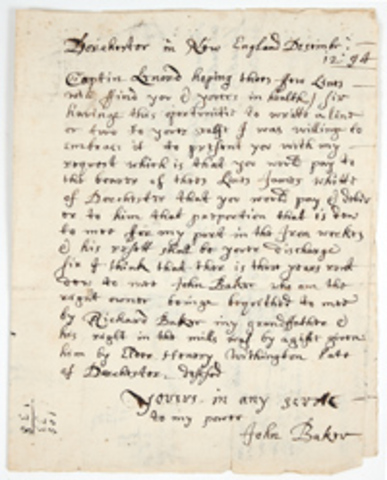 Dorchester in New England Desember
12: 94
Captin Lenord hoping thees few Lines
will ffind you & youers in health Sir
haveing this opertunitie to writte a line
or two to your sellfe I was willing to
embrace it to present you with my
request which is that you would pay to
the bearer of thees Lines James White
of Dorchester that you would pay & deliver
er to him that proportion that is dew
to mee ffor my part in the Iron workes
& his resett shall be youer discharge
Sir I think that ther is three years rent
dew to mee John Baker who am the
right owner beinge bequithed to mee
by Richard Baker my grandffather &
his right in the mils was by a gift given
him by Elder Henery Withington late
of Dorchester desesed
Youers in any servic
to my power
John Baker